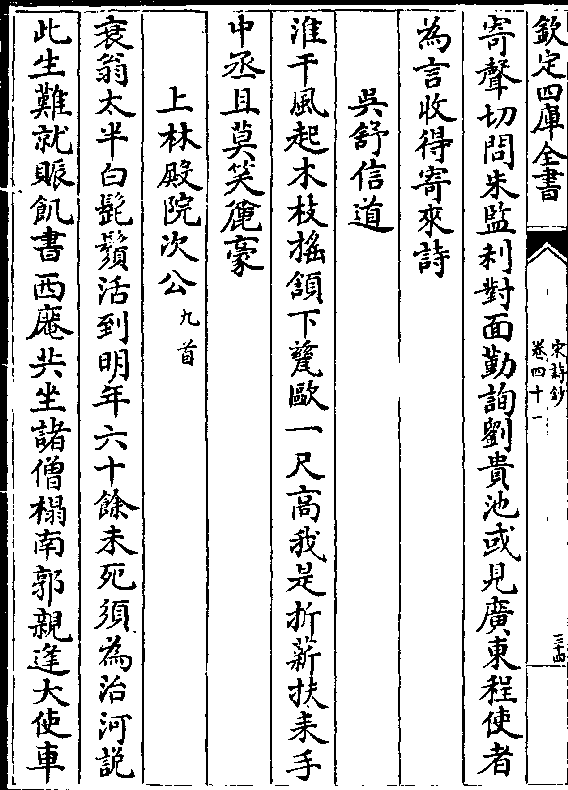 欽定四庫全書
宋詩鈔
卷四十一
三十四
寄聲切問朱監利對面勤詢劉貴池或見廣東程使者
為言收得寄來詩
吳舒信道
淮干風起木枝搖頷下甕歐一尺高我是折薪扶耒手
中丞且莫笑麄豪
上林殿院次公九首
衰翁太半白髭鬚活到明年六十餘未死須為治河説
此生難就賑飢書西廡共坐諸僧榻南郭親逢大使車